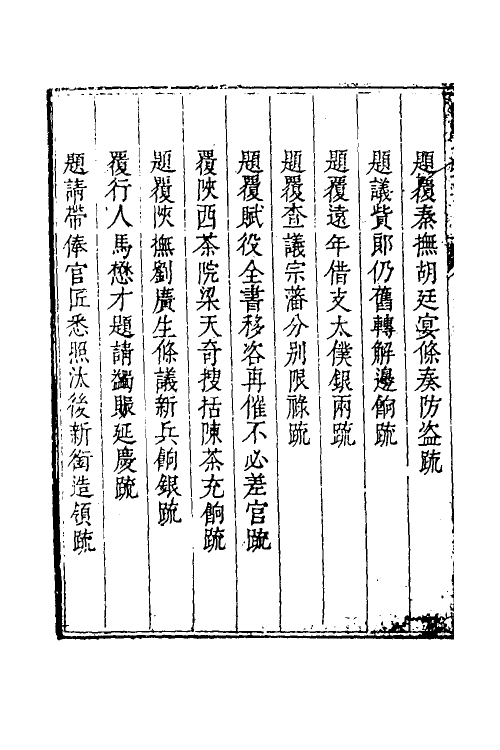 題覆秦撫胡廷宴條奏防盜疏
題議貲郎仍舊轉解邊餉疏
題覆遠年借支太僕銀兩疏
題覆查議宗藩分别限祿疏
題覆賦役全書移咨再催不必差官疏
覆陝西茶院梁天奇搜括陳茶充餉疏
題覆陝撫劉廣生條議新兵餉銀疏
覆行人馬懋才題請蠲賑延慶疏
題請帶俸官匠悉照汰後新銜造領疏